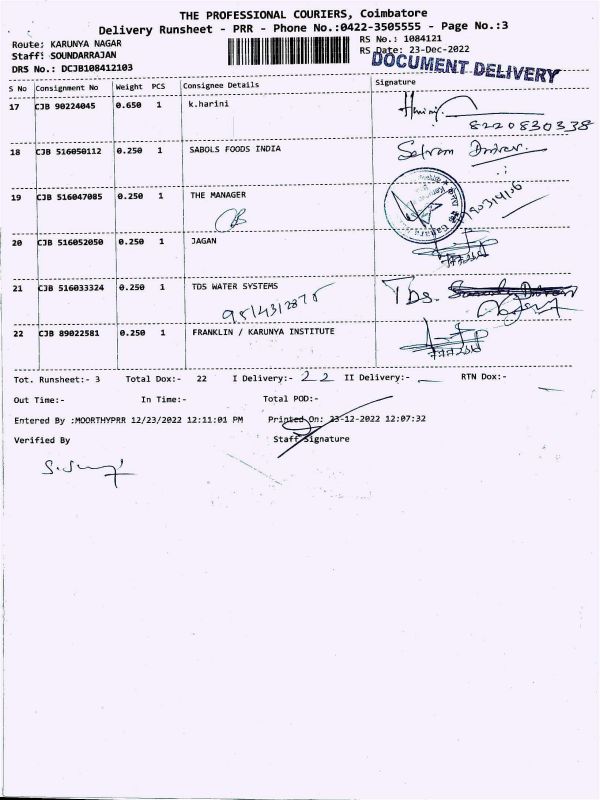 THE PROFESSIONAL COURIERS, Coimbatore
Delivery Runsheet - PRR - Phone No.:0422-3505555 - Page No.:3
Route: KARUNYA NAGAR RS No.: 1084121
Staff: SOUNDARRAJAN RS Date: 23-Dec-2022
DRS No.: DCJB108412103 DOCUMENT DELIVERY
S No Consignment No Weight PCS Consignee Details Signature
17 CJB 90224045 0.650 1 k.harini
8220830338
18 CJB 516050112 0.250 1 SABOLS FOODS INDIA
19 CJB 516047085 0.250 1 THE MANAGER
20 CJB 516052050 0.250 1 JAGAN
21 CJB 516033324 0.250 1 TDS WATER SYSTEMS Tds.
22 CJB 89022581 0.250 1 FRANKLIN / KARUNYA INSTITUTE
Tot. Runsheet:- 3 Total Dox:- 22 I Delivery:- 22 II Delivery:- RTN Dox:-
Out Time:- In Time:- Total POD:-
Entered By :MOORTHYPRR 12/23/2022 12:11:01 PM Printed On: 23-12-2022 12:07:32
Verified By Staff Signature